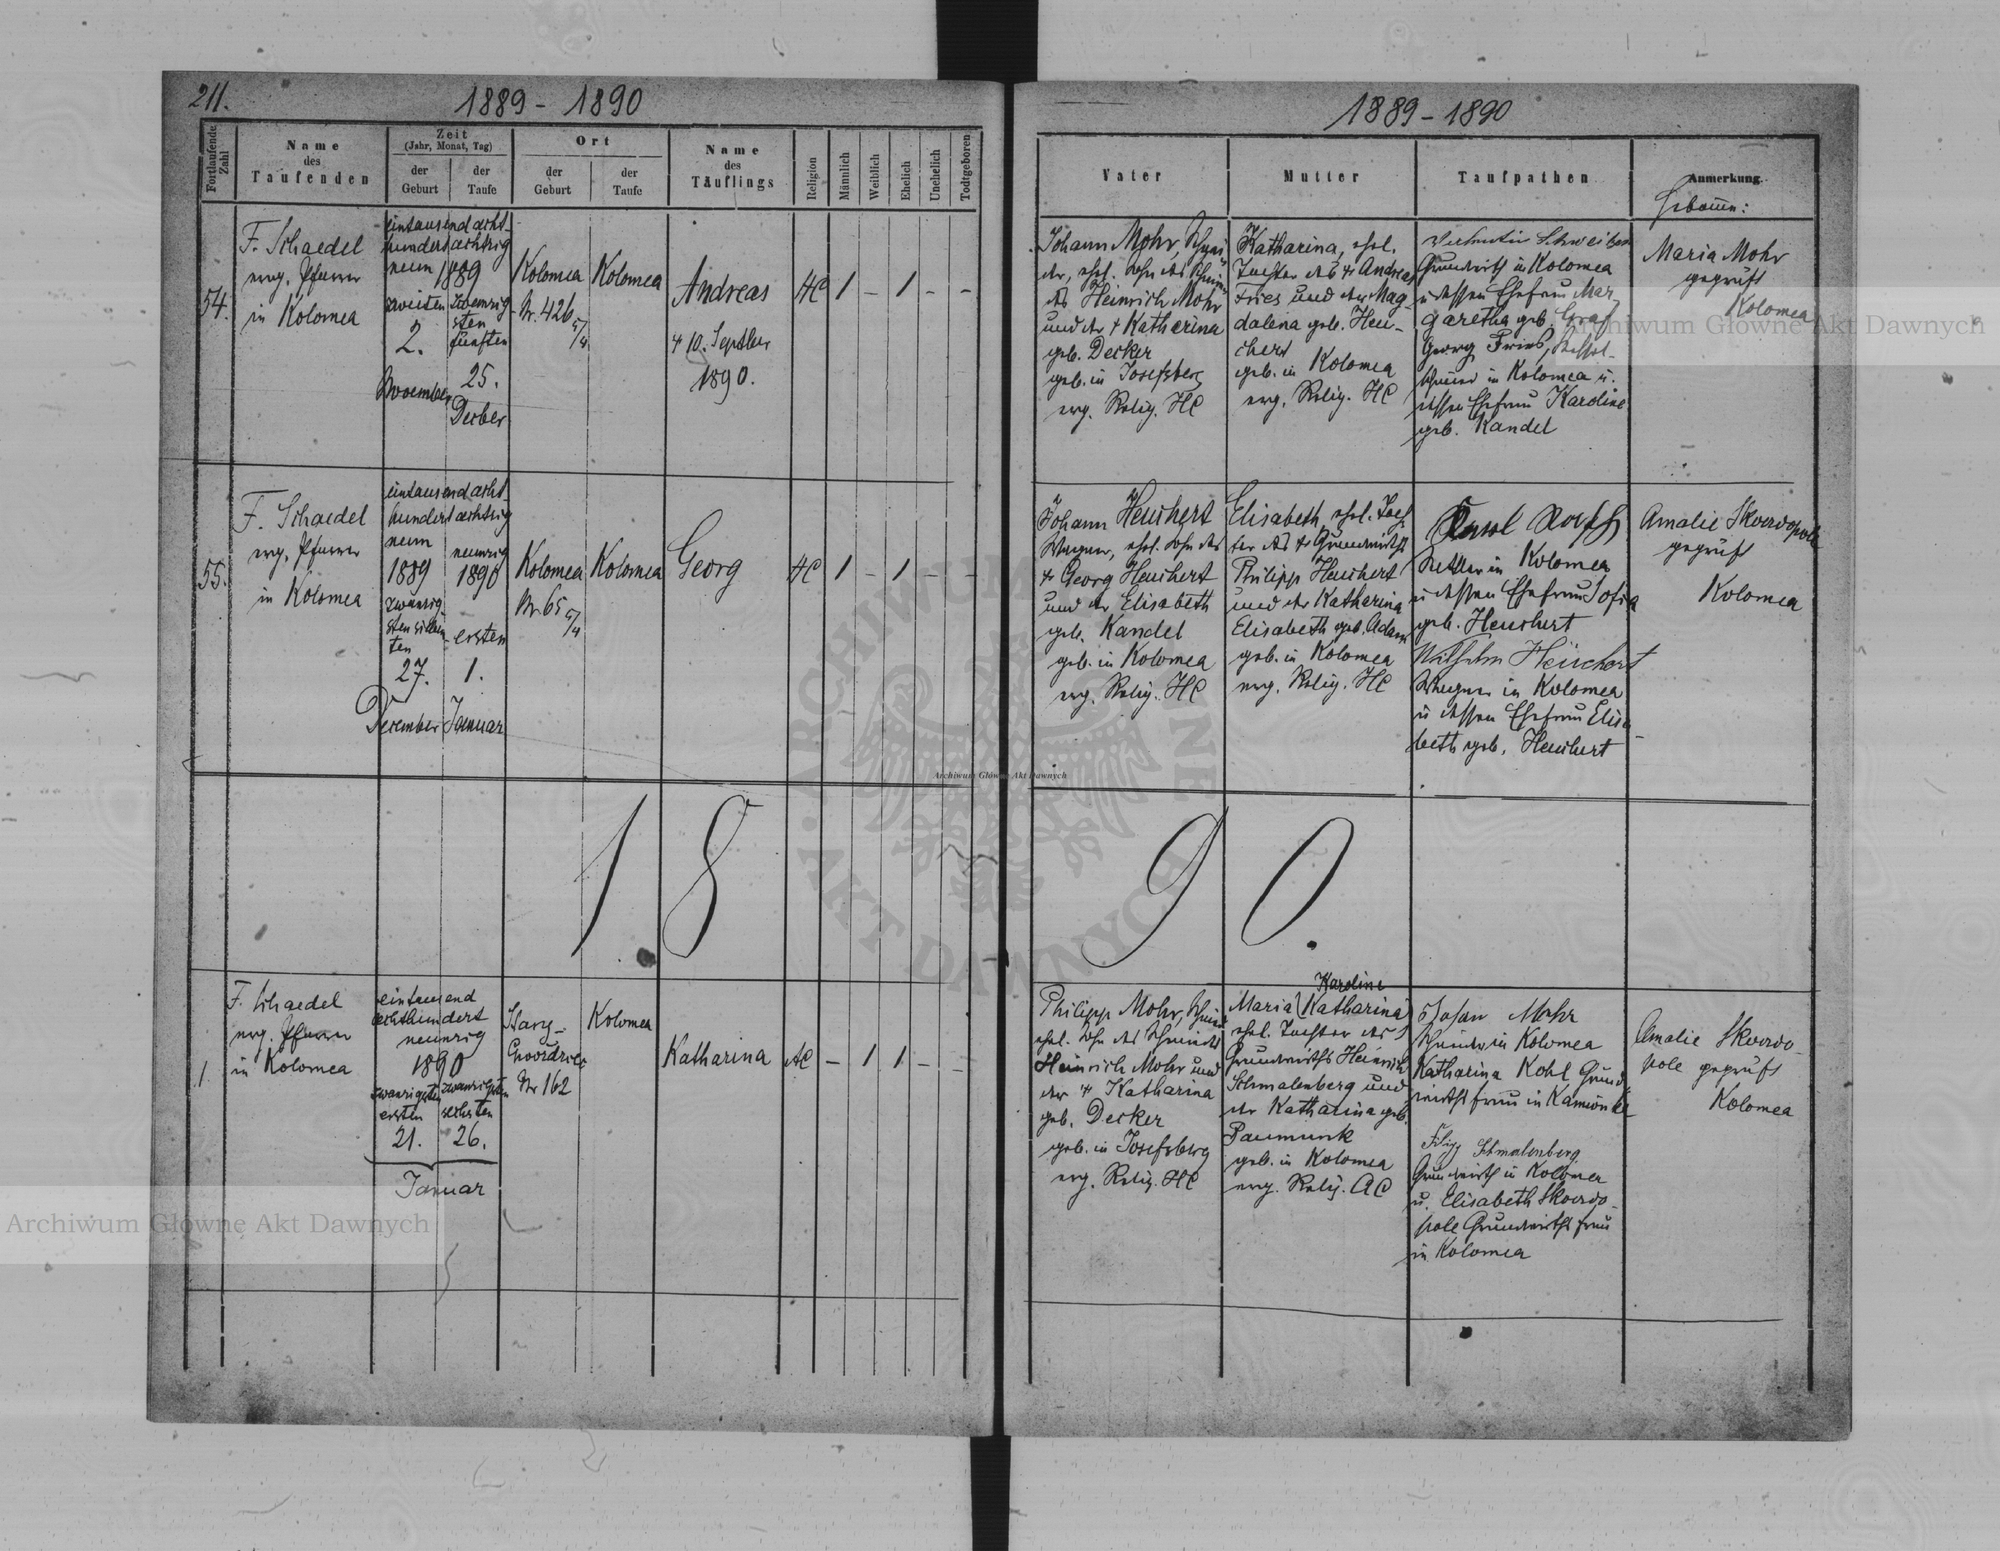 211.
1889 - 1890
Fortlaufende Zahl
Name
des
Taufenden
Zeit
(Jahr, Monat, Tag)
der
Geburt
der
Taufe
Ort
der
Geburt
der
Taufe
Name
des
Täuflings
Religion
Männlich
Weiblich
Ehelich
Unehelich
Todtgeboren
54.
F. Schaedel
evg. Pfarrer
in Kolomea
eintausend acht-
hundert achtzig
neun 1889
zweiten
2.
November
fünften
25.
Dezber
Kolomea
Nr. 426
Kolomea
Andreas
† 10. Septber
1890.
HC
1
-
1
-
-
55.
F. Schaedel
evg. Pfarrer
in Kolomea
eintausend acht-
hundert achtzig
neun
1889
zwanzig
sten sieben
ten
27.
December
neunzig
1890
ersten
1.
Januar
Kolomea
Nr. 65
Kolomea
Georg
HC
1
-
1
-
-
18
1.
F. Schaedel
evg. Pfarrer
in Kolomea
eintausend
achthundert
neunzig
1890
zwanzigsten
ersten
21.
zwanzigsten
sechsten
26.
Januar
Nr 162
Kolomea
Katharina
AC
-
1
1
-
-
1889 - 1890
Vater
Mutter
Taufpathen
Anmerkung.
Hebamme:
Johann Mohr, Schmi-
des Heinrich Mohr
und der † Katharina
geb. Decker
geb. in Josefsberg
evg. Relig. HC
Katharina, ehel.
Tochter des † Andreas
Fries und der Mag-
dalena geb. Heu-
chert
geb. in Kolomea
evg. Relig. HC
Grundwirth in Kolomea
u dessen Ehefrau Mar-
garetha geb. Graf
Georg Fries,
in Kolomea u.
dessen Ehefrau Karoline
geb. Kandel
Maria Mohr
geprüft
Kolomea
Johann Heuchert
Wagner, ehel. Sohn des
† Georg Heuchert
und der Elisabeth
geb. Kandel
geb. in Kolomea
evg. Relig. HC
Elisabeth, ehel. Toch-
ter des † Grundwirths
Philipp Heuchert
und der Katharina
Elisabeth geb. Adam
geb. in Kolomea
evg. Relig. HC
in Kolomea
u dessen Ehefrau Sofia
geb. Heuchert
Wilhelm Heuchert
Wagner in Kolomea
u dessen Ehefrau Elisa-
beth geb. Heuchert
Amalie Skwordopole
geprüft
Kolomea
90.
Philipp Mohr, Schmied
ehel. Sohn des Schmiedes
Heinrich Mohr und
der † Katharina
geb. Decker
geb. in Josefsberg
evg. Relig. HC
Karoline
Maria (Katharina)
ehel. Tochter des
Grundwirths Heinrich
Schmalenberg und
der Katharina geb.
Paumunk
geb. in Kolomea
evg. Relig. AC
Johan Mohr
Schmied in Kolomea
Katharina Kohl Grund-
wirths frau in Kamionka
Filipp Schmalenberg
Grundwirth in Kolomea
u. Elisabeth Skwordo-
pole Grundwirths frau
in Kolomea
Amalie Skwordo-
pole geprüft
Kolomea
Archiwum Główne Akt Dawnych
Archiwum Główne Akt Dawnych
Archiwum Główne Akt Dawnych
ARCHIWUM GŁÓWNE AKT DAWNYCH